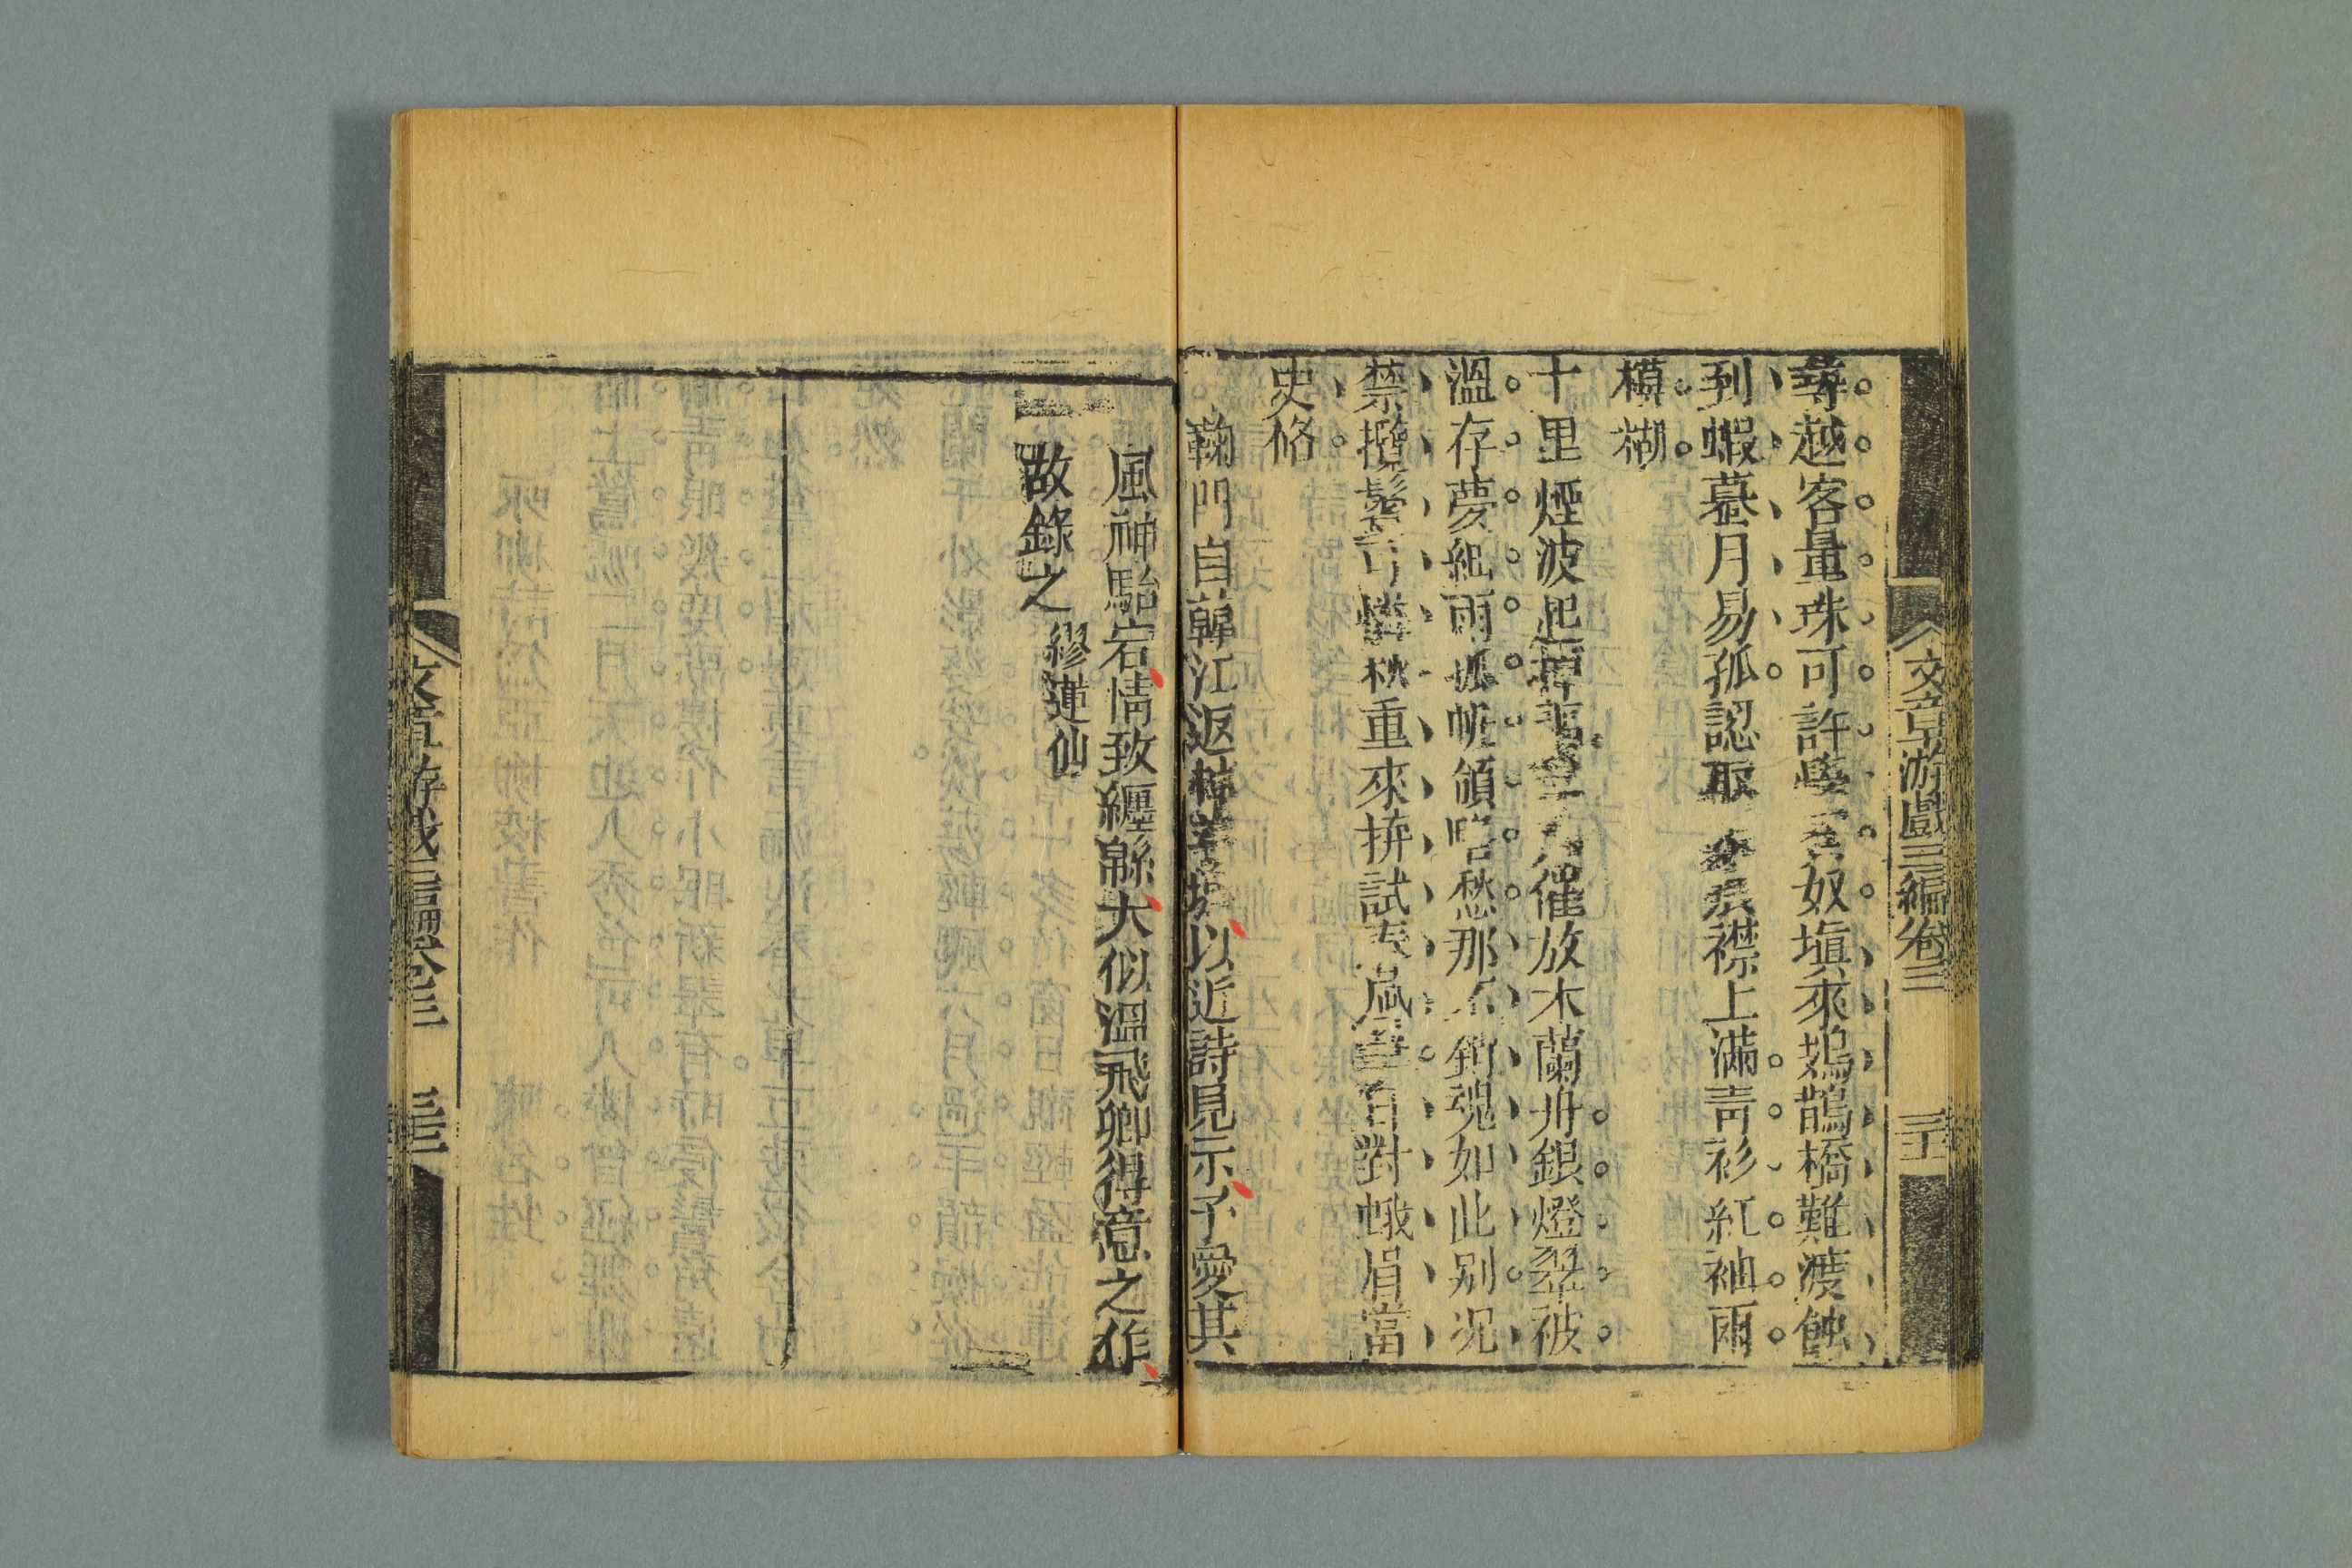 文章游戲三編卷三
尋越客量珠可許奴塡來鴆鵲橋難渡蝕
到蝦蟇月易孤認取 痕襟上滿靑衫紅袖雨
模糊
十里煙波起 催放木蘭舟銀燈翠被
溫存夢細雨孤帆領略愁那不銷魂如此别况
禁攬鬢 憐秋重來拚試 嵐 自對蛾眉當
史修
鞠門自韓江返棹羊城以近詩見示予愛其
風神駘宕情致纏緜大似溫飛卿得意之作
故錄之 繆蓮仙
文章游戲三編卷三